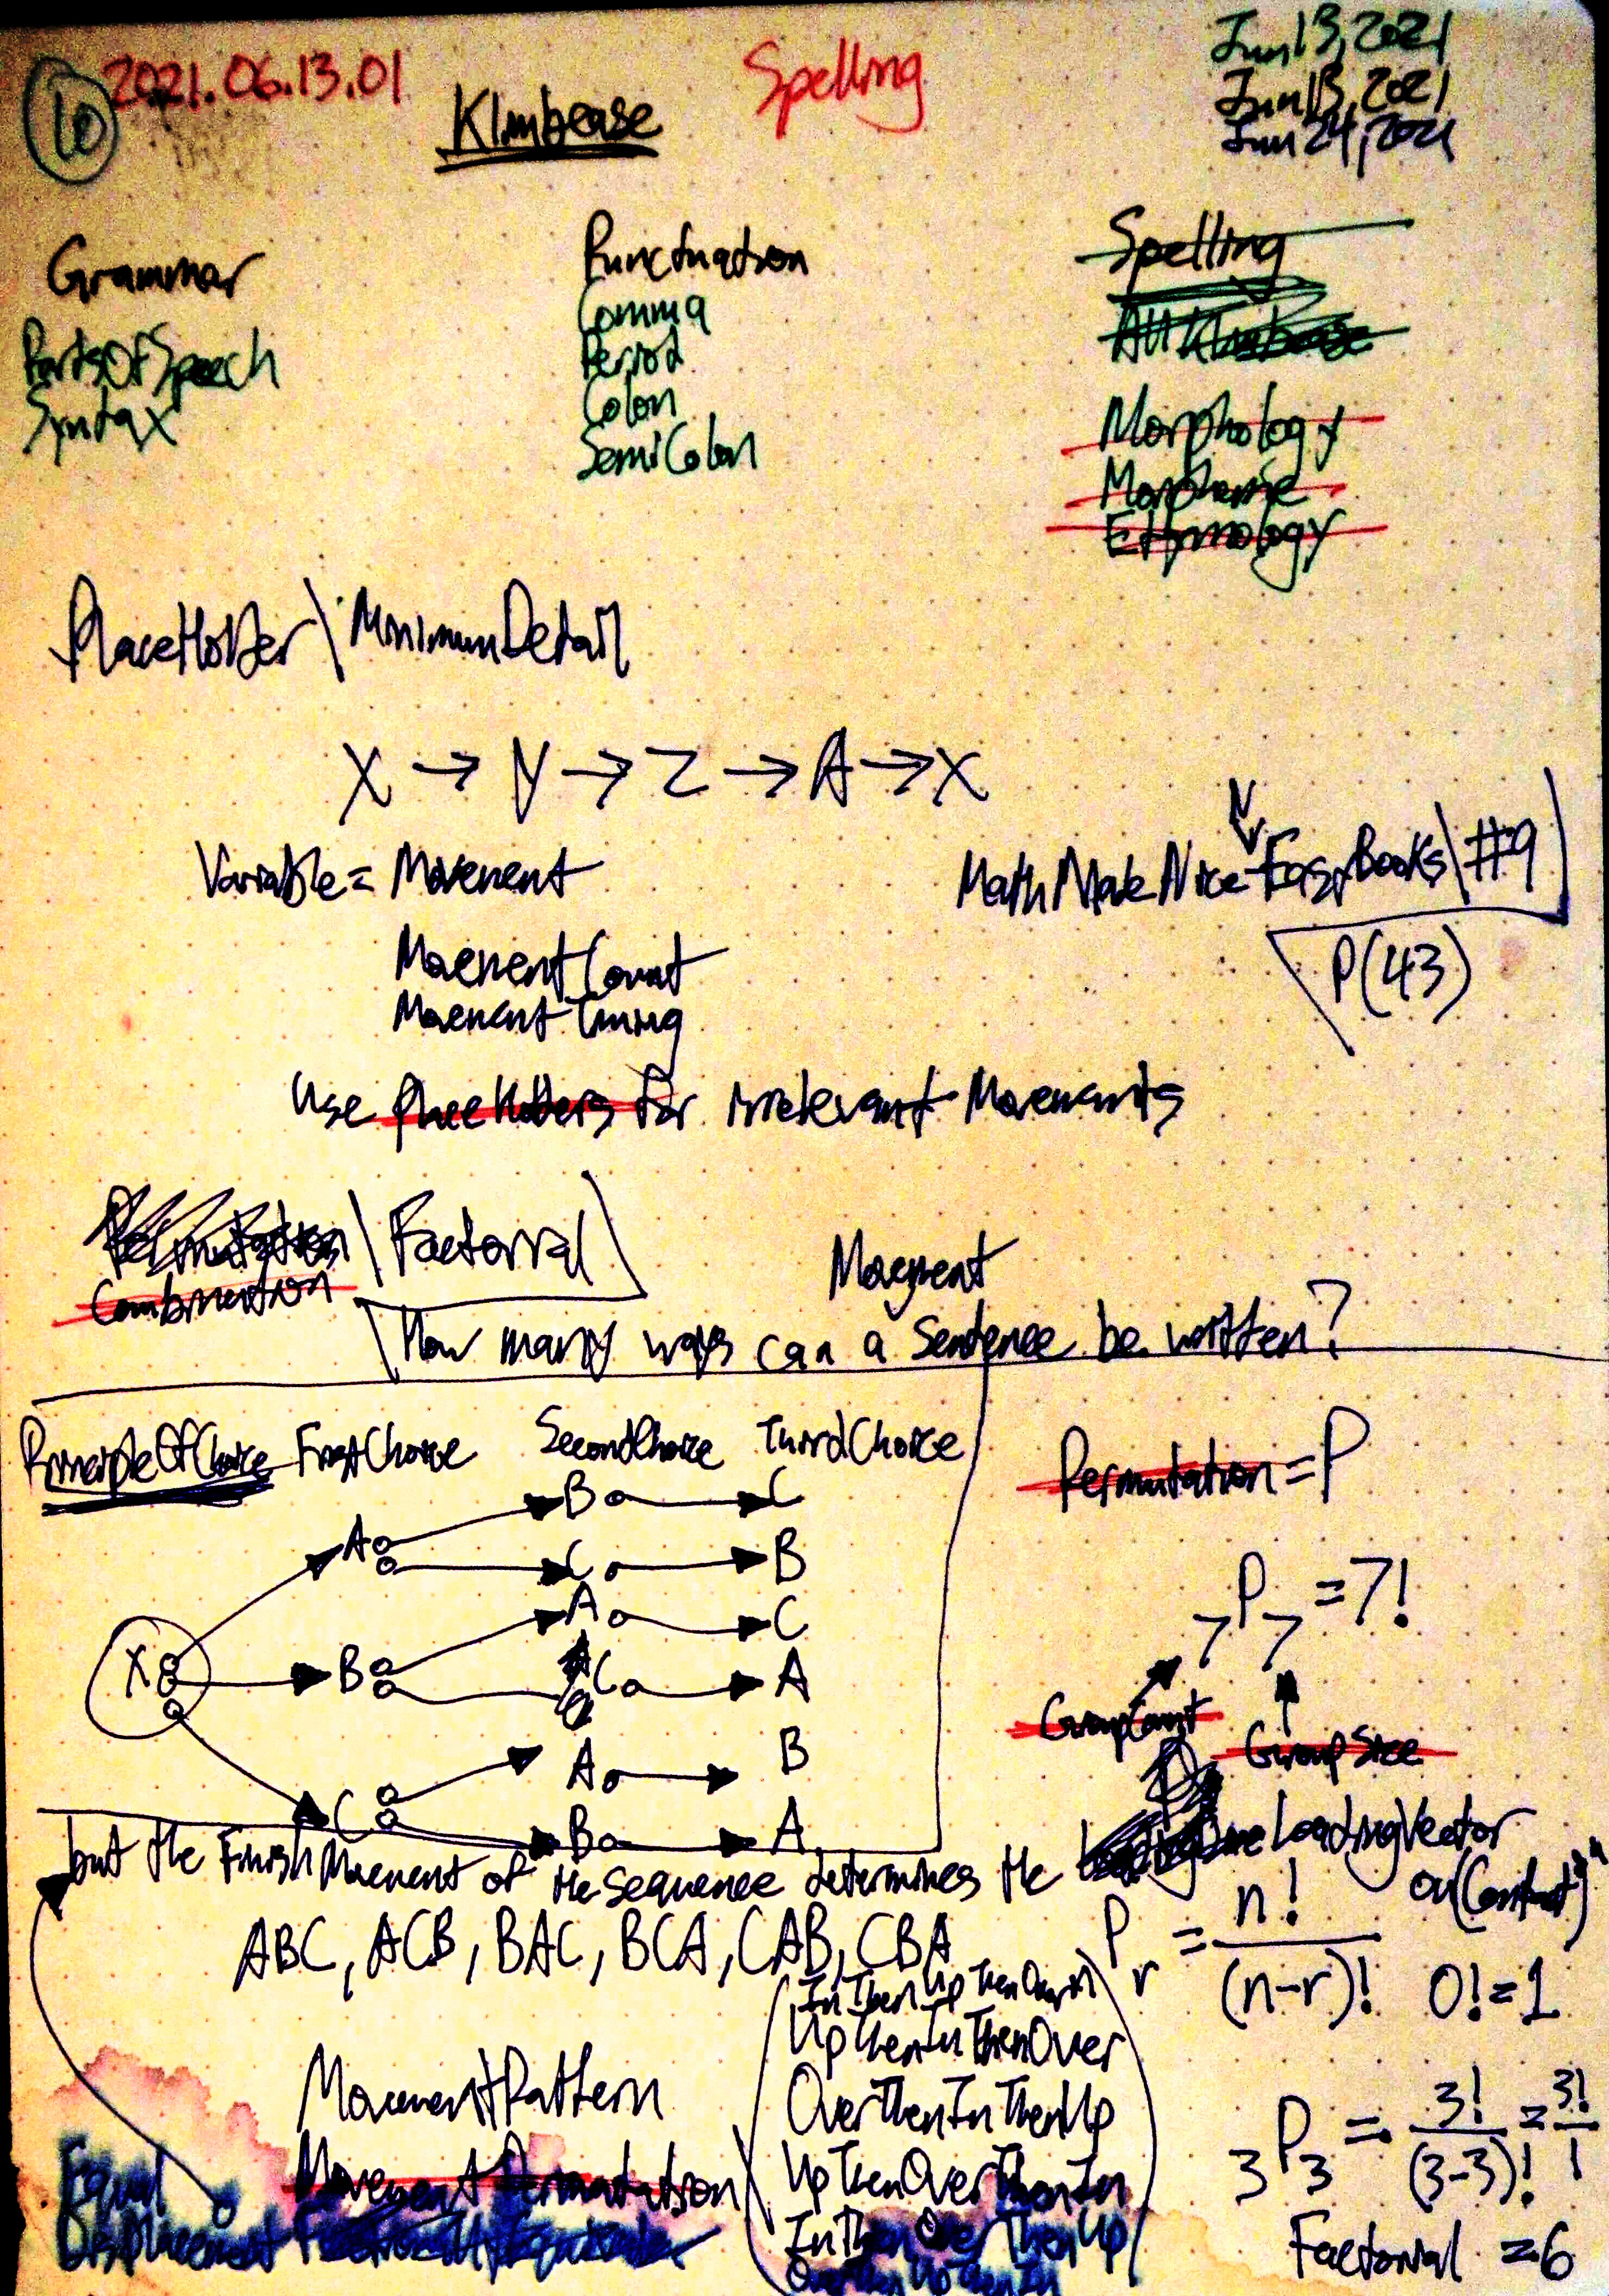 10 2021.06.13.01
Klimbease
Spelling
Jun 13, 2021
Jun 13, 2021
Jun 24, 2021
Grammar
PartsOfSpeech
Syntax
Punctuation
Comma
Period
Colon
SemiColon
Spelling
Morphology
Morpheme
Etymology
PlaceHolder \ MinimumDetail
X → Y → Z → A → X
Variable = Movement
MovementCount
MovementTiming
N
MathMadeNice-EasyBooks \ #9
P(43)
Use placeHolders for irrelevant Movements
Permutation \ Factorial
Combination
Movement
How many ways can a Sentence be written?
PrincipleOfChoice FirstChoice SecondChoice ThirdChoice
X
A B C
C B
B A C
C A
C A B
B A
Permutation = P
7P7 = 7!
GroupCount
GroupSize
but the Finish Movement of the Sequence determines the LoadingVector
on(Contact)
ABC, ACB, BAC, BCA, CAB, CBA
Pr = n! / (n-r)! 0! = 1
MovementPattern
Movement Permutation
InThenUpThenOver
UpThenInThenOver
OverThenInThenUp
UpThenOverThenIn
InThenOverThenUp
OverThenUpThenIn
3P3 = 3! / (3-3)! = 3! / 1
Factorial = 6
Equal
Displacement